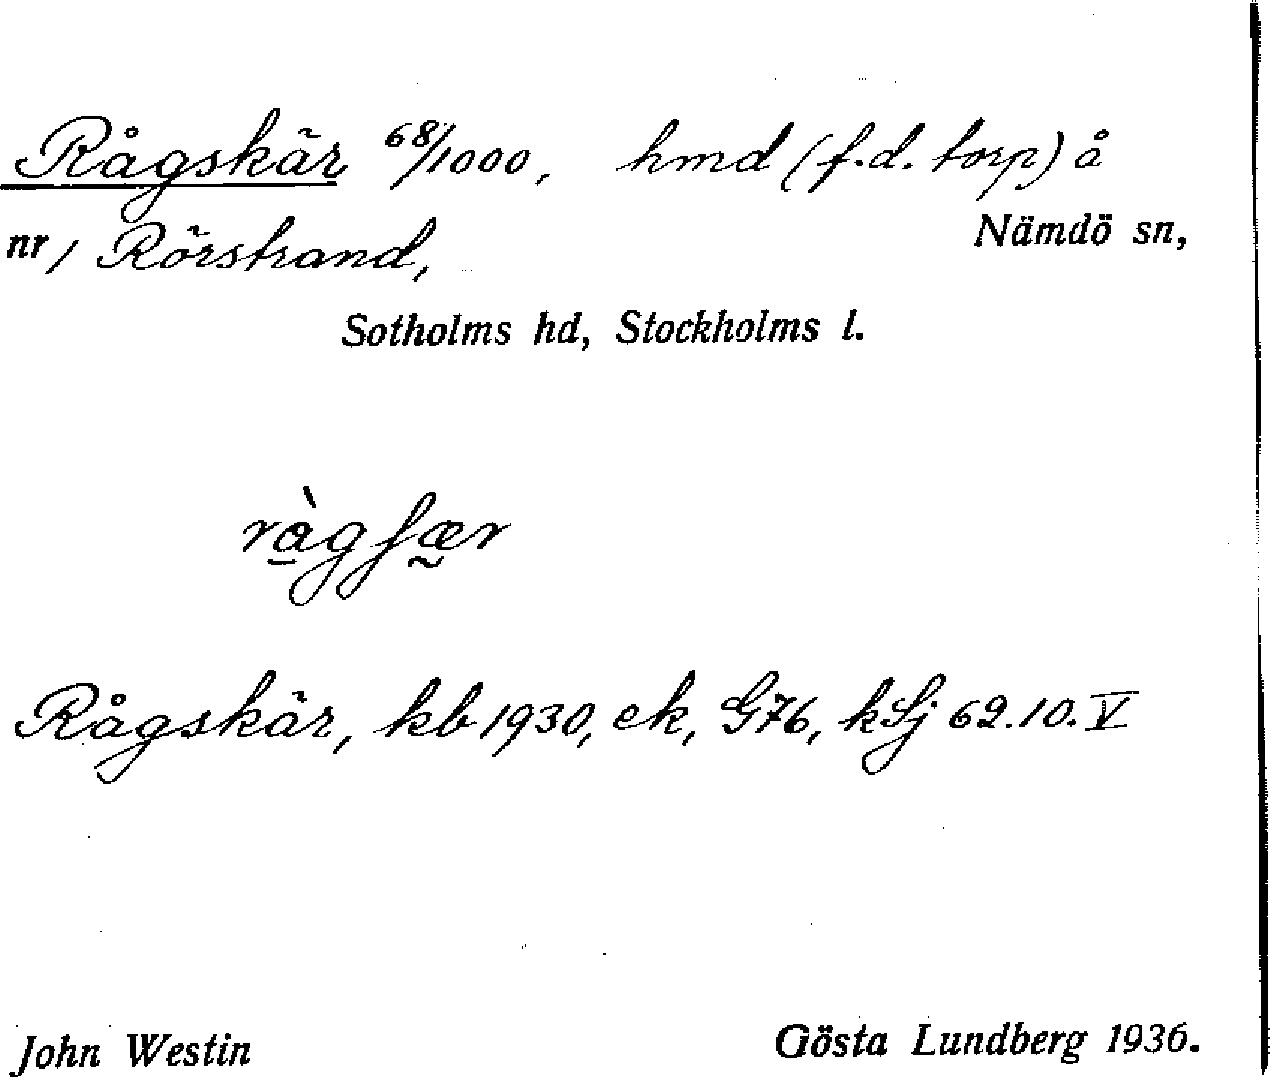 Rågskär 68/1000, hmd (f.d. torp) å
nr 1 Rörstrand, Nämdö sn,
Sotholms hd, Stockholms l.
rå̀gʃær
Rågskär, kb 1930, ek, G76, kSj 62.10.V
John Westin Gösta Lundberg 1936.